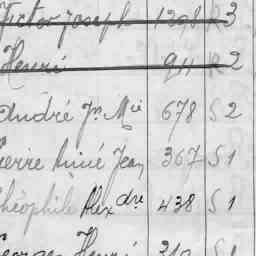 Victor Joseph 1298 R 3
Henri 911 R 2
André Jn Mie 678 S 2
Pierre Aimé Jean 367 S 1
Théophile Alexdre 438 S 1
Georges Henri 310 S 1